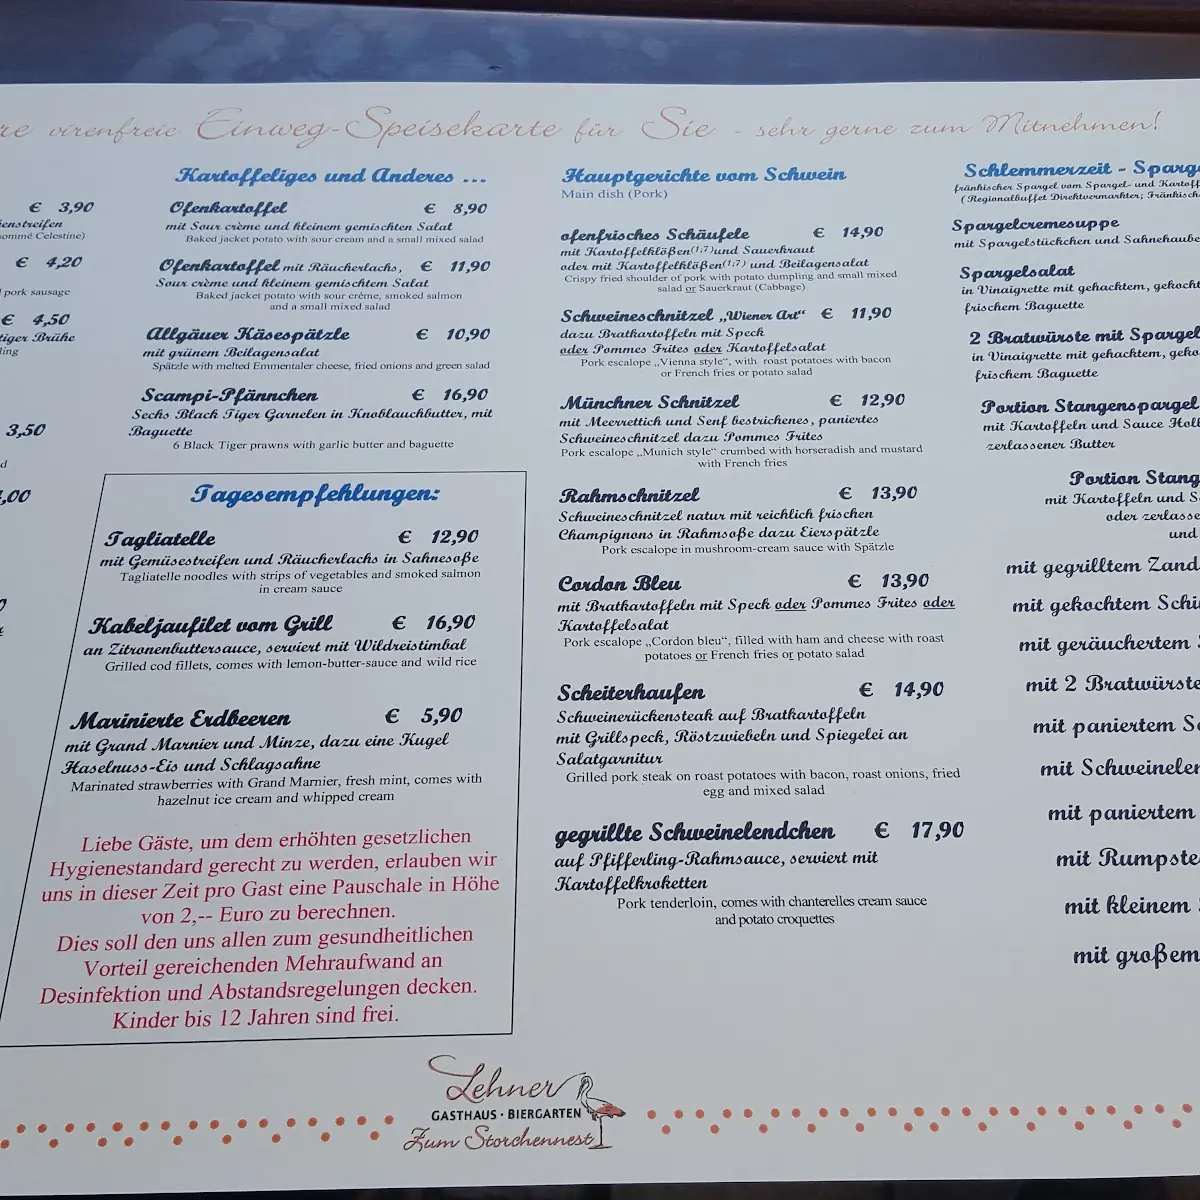 virenfreie Einweg-Speisekarte für Sie - sehr gerne zum Mitnehmen!
€ 3,90
€ 4,20
pork sausage
€ 4,50
3,50
Kartoffeliges und Anderes ...
Ofenkartoffel € 8,90
mit Sour crème und kleinem gemischten Salat
Baked jacket potato with sour cream and a small mixed salad
Ofenkartoffel mit Räucherlachs, € 11,90
Sour crème und kleinem gemischtem Salat
Baked jacket potato with sour crème, smoked salmon
and a small mixed salad
Allgäuer Käsespätzle € 10,90
mit grünem Beilagensalat
Spätzle with melted Emmentaler cheese, fried onions and green salad
Scampi-Pfännchen € 16,90
Sechs Black Tiger Garnelen in Knoblauchbutter, mit
Baguette
6 Black Tiger prawns with garlic butter and baguette
Tagesempfehlungen:
Tagliatelle € 12,90
mit Gemüsestreifen und Räucherlachs in Sahnesoße
Tagliatelle noodles with strips of vegetables and smoked salmon
in cream sauce
Kabeljaufilet vom Grill € 16,90
an Zitronenbuttersauce, serviert mit Wildreistimbal
Grilled cod fillets, comes with lemon-butter-sauce and wild rice
Marinierte Erdbeeren € 5,90
mit Grand Marnier und Minze, dazu eine Kugel
Haselnuss-Eis und Schlagsahne
Marinated strawberries with Grand Marnier, fresh mint, comes with
hazelnut ice cream and whipped cream
Liebe Gäste, um dem erhöhten gesetzlichen
Hygienestandard gerecht zu werden, erlauben wir
uns in dieser Zeit pro Gast eine Pauschale in Höhe
von 2,-- Euro zu berechnen.
Dies soll den uns allen zum gesundheitlichen
Vorteil gereichenden Mehraufwand an
Desinfektion und Abstandsregelungen decken.
Kinder bis 12 Jahren sind frei.
Hauptgerichte vom Schwein
Main dish (Pork)
ofenfrisches Schäufele € 14,90
mit Kartoffelklößen(1;7) und Sauerkraut
oder mit Kartoffelklößen(1;7) und Beilagensalat
Crispy fried shoulder of pork with potato dumpling and small mixed
salad or Sauerkraut (Cabbage)
Schweineschnitzel „Wiener Art“ € 11,90
dazu Bratkartoffeln mit Speck
oder Pommes Frites oder Kartoffelsalat
Pork escalope „Vienna style“, with roast potatoes with bacon
or French fries or potato salad
Münchner Schnitzel € 12,90
mit Meerrettich und Senf bestrichenes, paniertes
Schweineschnitzel dazu Pommes Frites
Pork escalope „Munich style“ crumbed with horseradish and mustard
with French fries
Rahmschnitzel € 13,90
Schweineschnitzel natur mit reichlich frischen
Champignons in Rahmsoße dazu Eierspätzle
Pork escalope in mushroom-cream sauce with Spätzle
Cordon Bleu € 13,90
mit Bratkartoffeln mit Speck oder Pommes Frites oder
Kartoffelsalat
Pork escalope „Cordon bleu“, filled with ham and cheese with roast
potatoes or French fries or potato salad
Scheiterhaufen € 14,90
Schweinerückensteak auf Bratkartoffeln
mit Grillspeck, Röstzwiebeln und Spiegelei an
Salatgarnitur
Grilled pork steak on roast potatoes with bacon, roast onions, fried
egg and mixed salad
gegrillte Schweinelendchen € 17,90
auf Pfifferling-Rahmsauce, serviert mit
Kartoffelkroketten
Pork tenderloin, comes with chanterelles cream sauce
and potato croquettes
Schlemmerzeit - Sparge
fränkischer Spargel vom Spargel- und Kartoff
(Regionalbuffet Direktvermarkter; Fränkisch
Spargelcremesuppe
mit Spargelstückchen und Sahnehaube
Spargelsalat
in Vinaigrette mit gehacktem, gekocht
frischem Baguette
2 Bratwürste mit Spargel
in Vinaigrette mit gehacktem, geko
frischem Baguette
Portion Stangenspargel
mit Kartoffeln und Sauce Holl
zerlassener Butter
Portion Stang
mit Kartoffeln und S
oder zerlasse
und
mit gegrilltem Zand
mit gekochtem Schi
mit geräuchertem
mit 2 Bratwürste
mit paniertem Sc
mit Schweinelen
mit paniertem
mit Rumpste
mit kleinem
mit großem
Lehner
GASTHAUS · BIERGARTEN
Zum Storchennest